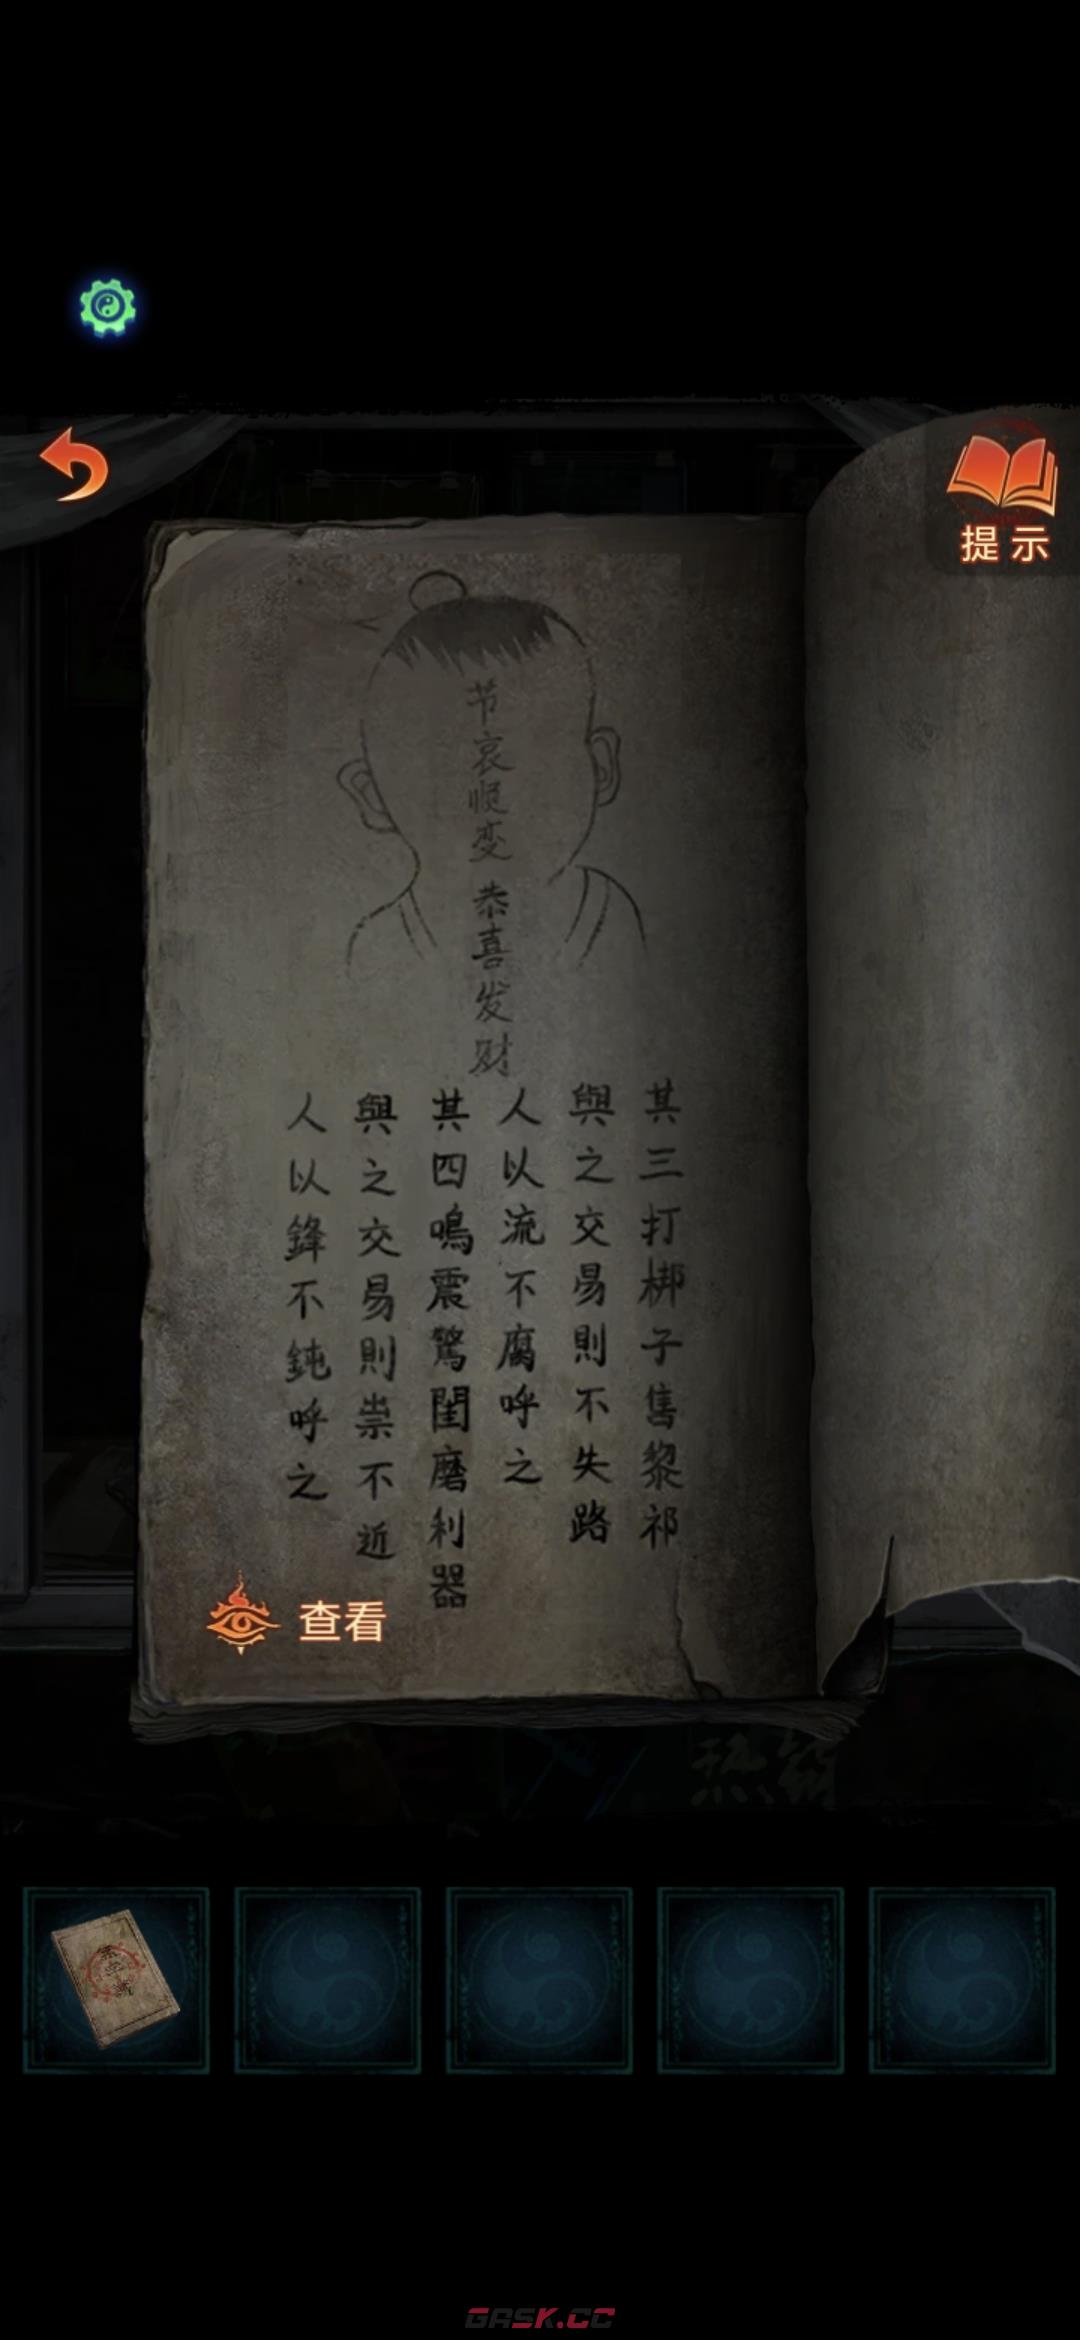 提示
节哀顺变 恭喜发财
其三打梆子售黎祁
與之交易則不失路
人以流不腐呼之
其四鳴震驚閨磨利器
與之交易則祟不近
人以鋒不鈍呼之
查看
GASK.CC